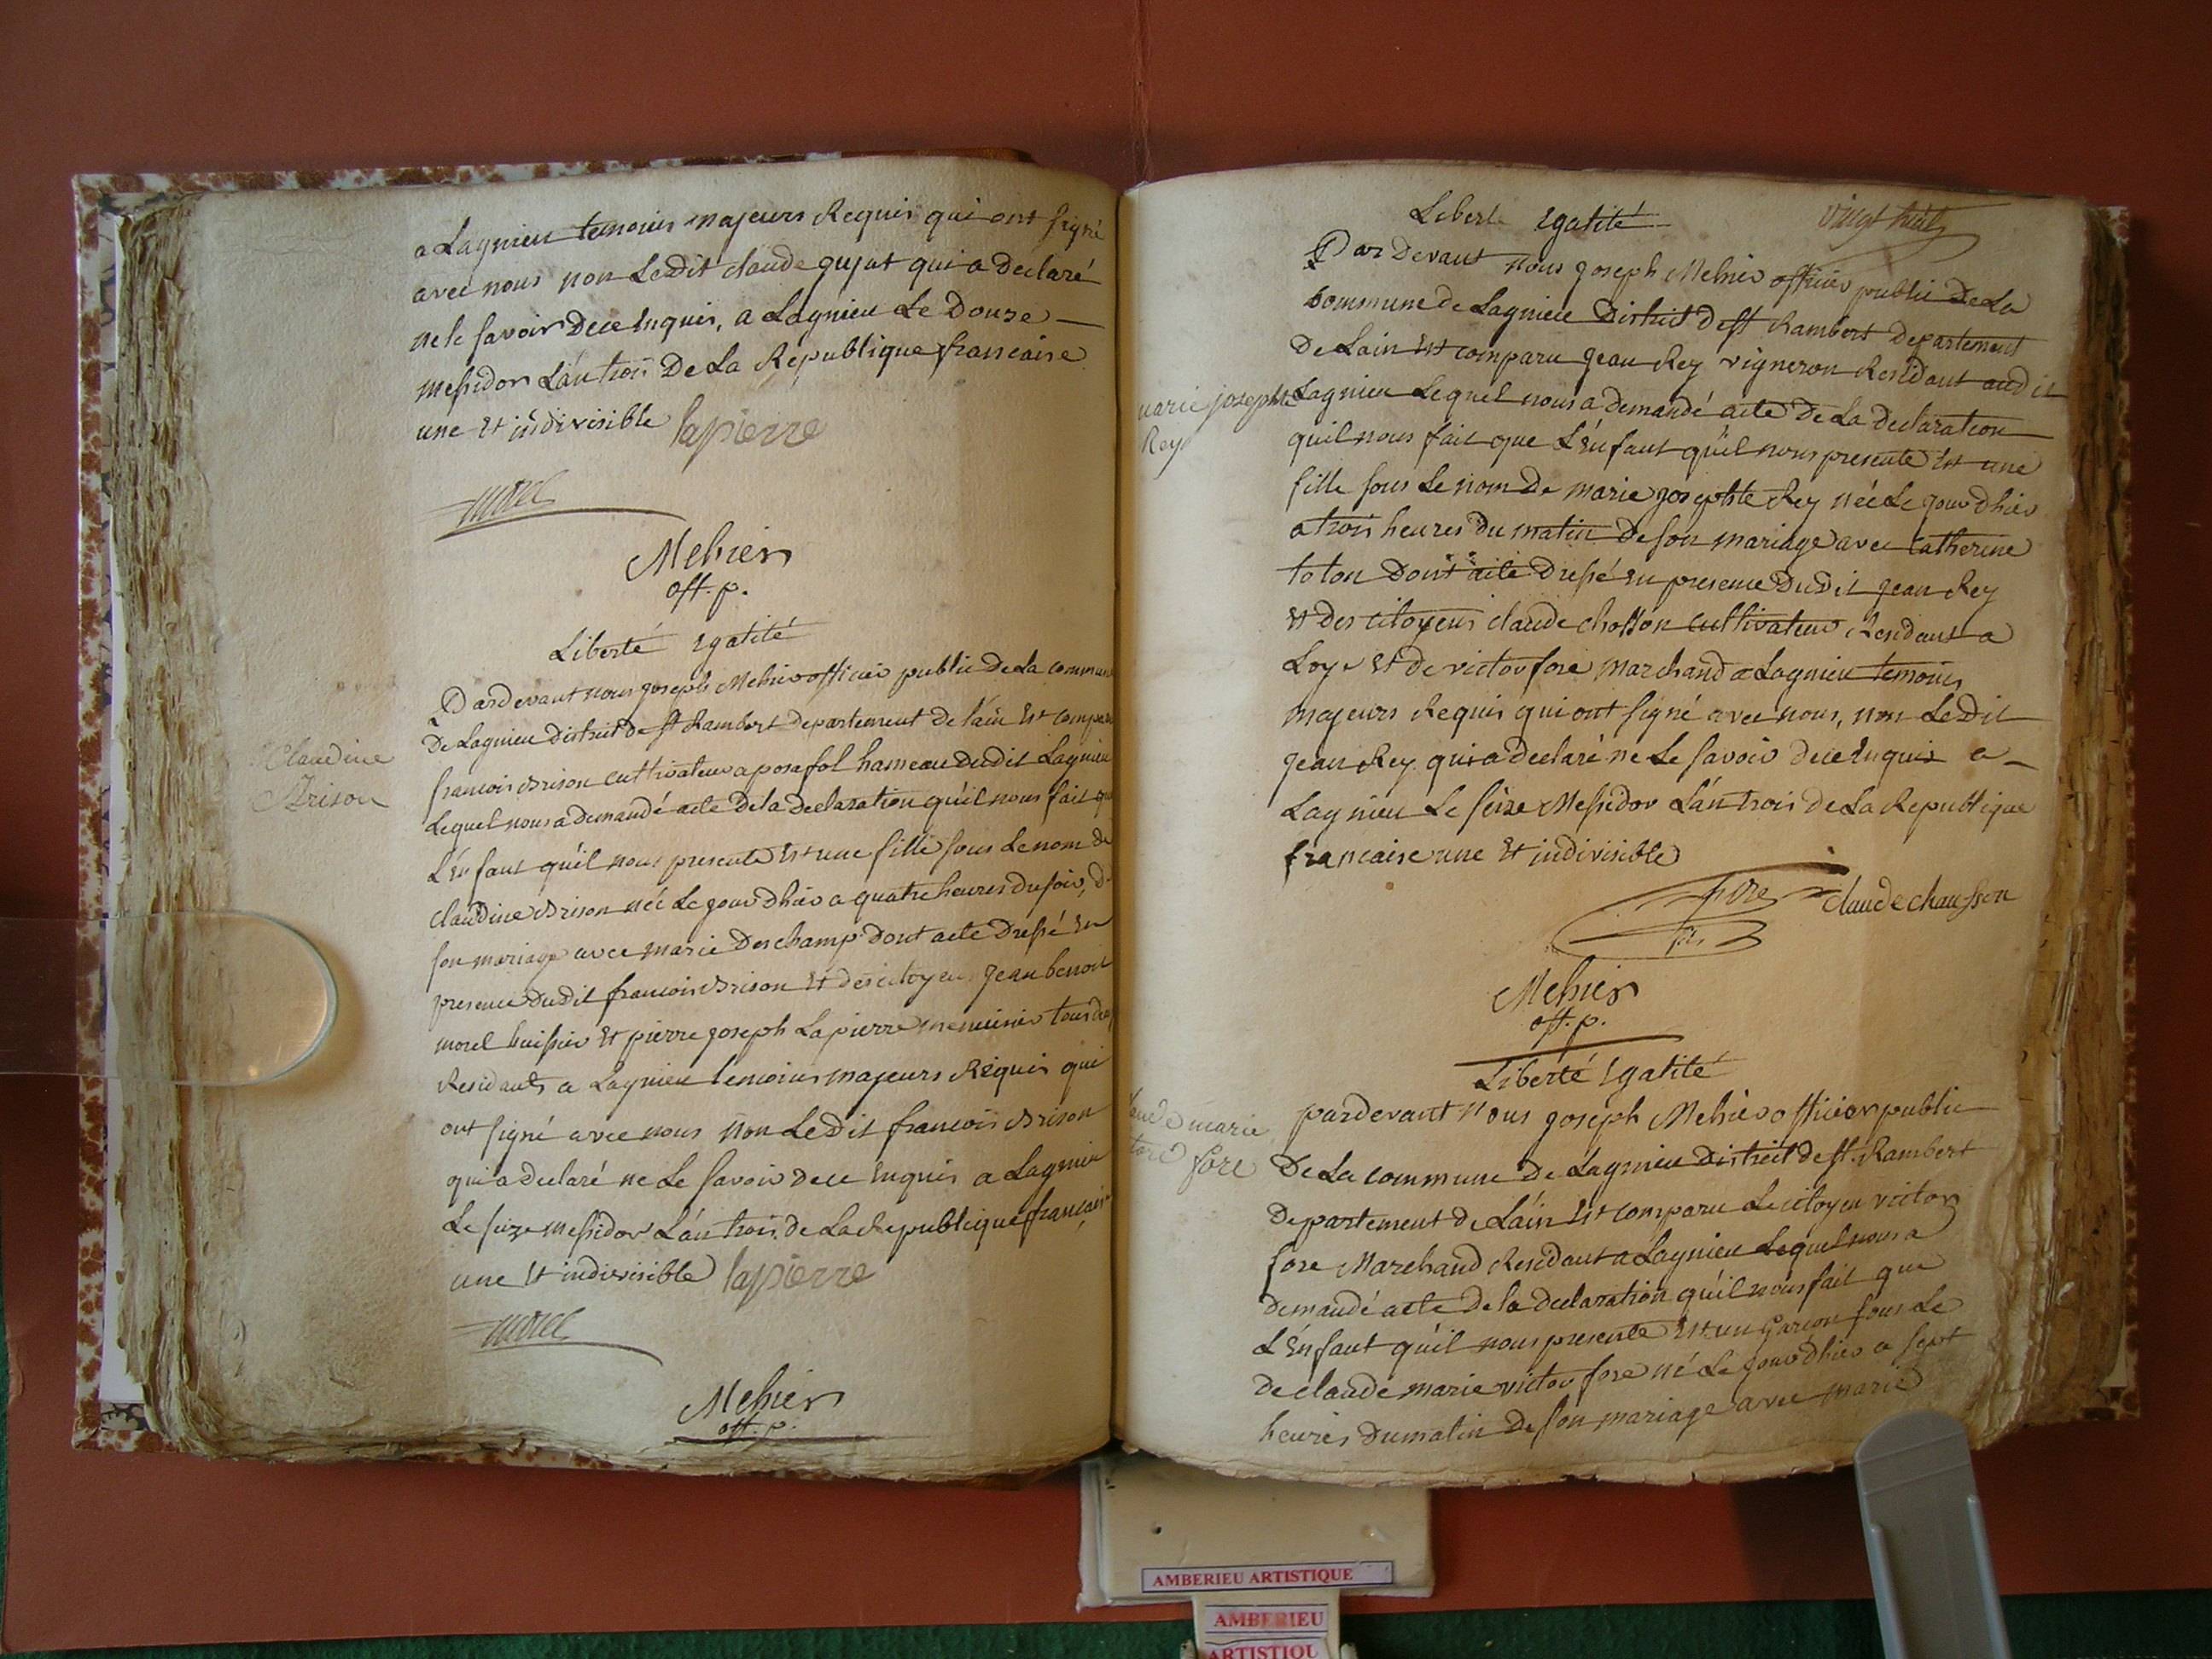 a Lagnieu temoins majeurs Requis qui ont signé
avec nous non Ledit claude gujat qui a declaré
ne le savoir de ce Enquis, a Lagnieu Le Douze
messidor L'an trois De La Republique francaise
une Et indivisible lapierre
morel
Mehier
off. p.
Liberté Egalité
Pardevant nous joseph Mehier officier public De La commune
De Lagnieu District de st Rambert Departement de l'ain Est comparu
francois Brison cultivateur a posafol hameau dudit Lagnieu
Lequel nous a demandé acte de la declaration qu'il nous fait que
L'Enfant qu'il nous presente Est une fille sous Le nom de
claudine Brison née Le jour d'hier a quatre heures du soir, de
son mariage avec marie Deschamp dont acte Dressé En
presence dudit francois Brison Et des citoyens jean benoit
morel huissier Et pierre joseph Lapierre menuisier tous deux
Residants a Lagnieu temoins majeurs Requis qui
ont signé avec nous non Ledit francois Brison
qui a declaré ne Le savoir de ce Enquis a Lagnieu
Le seize messidor L'an trois de La Republique francaise
une Et indivisible lapierre
morel
Mehier
off. p.
Claudine
Brison
Liberté Egalité
vingt huit
Par Devant nous joseph Mehier officier public De La
commune de Lagnieu District de st Rambert Departement
De Lain Est comparu jean Rey vigneron Residant audit
Lagnieu Lequel nous a demandé acte De La declaration
qu'il nous fait que L'Enfant qu'il nous presente Est une
fille sous Le nom De marie josephte Rey née Le jour d'hier
a trois heures du matin De son mariage avec Catherine
toton Dont acte Dressé En presence Dudit jean Rey
Et des citoyens claude chosson cultivateur Residant a
Loye Et de victor fore marchand a Lagnieu temoins
majeurs Requis qui ont signé avec nous, non Ledit
jean Rey qui a declaré ne Le savoir de ce Enquis a
Lagnieu Le seize Messidor L'an trois de La Republique
francaise une Et indivisible
fore claude chausson
Mehier
off. p.
marie josephte
Rey
Liberté Egalité
pardevant Nous joseph Mehier officier public
De La commune De Lagnieu District de st. Rambert
Departement de L'ain Est comparu Le citoyen victor
fore Marchand Residant a Lagnieu Lequel nous a
demandé acte de la declaration qu'il nous fait que
L'Enfant qu'il nous presente Est un garcon sous Le
De claude marie victor fore né Le jour d'hier a sept
heures du matin De son mariage avec marie
marie
fore
AMBERIEU ARTISTIQUE
AMBERIEU